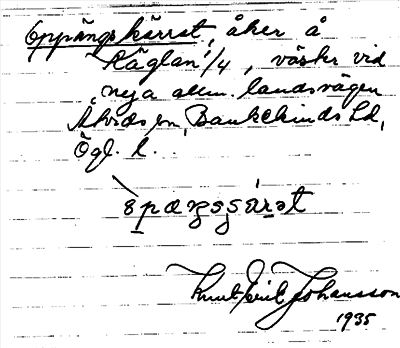 Oppängskärret, åker å
Käglan 1/4, väster vid
nya allm. landsvägen
Åtvids sn, Bankekinds hd,
Ögl. l.
Knut Erik Johansson
1935